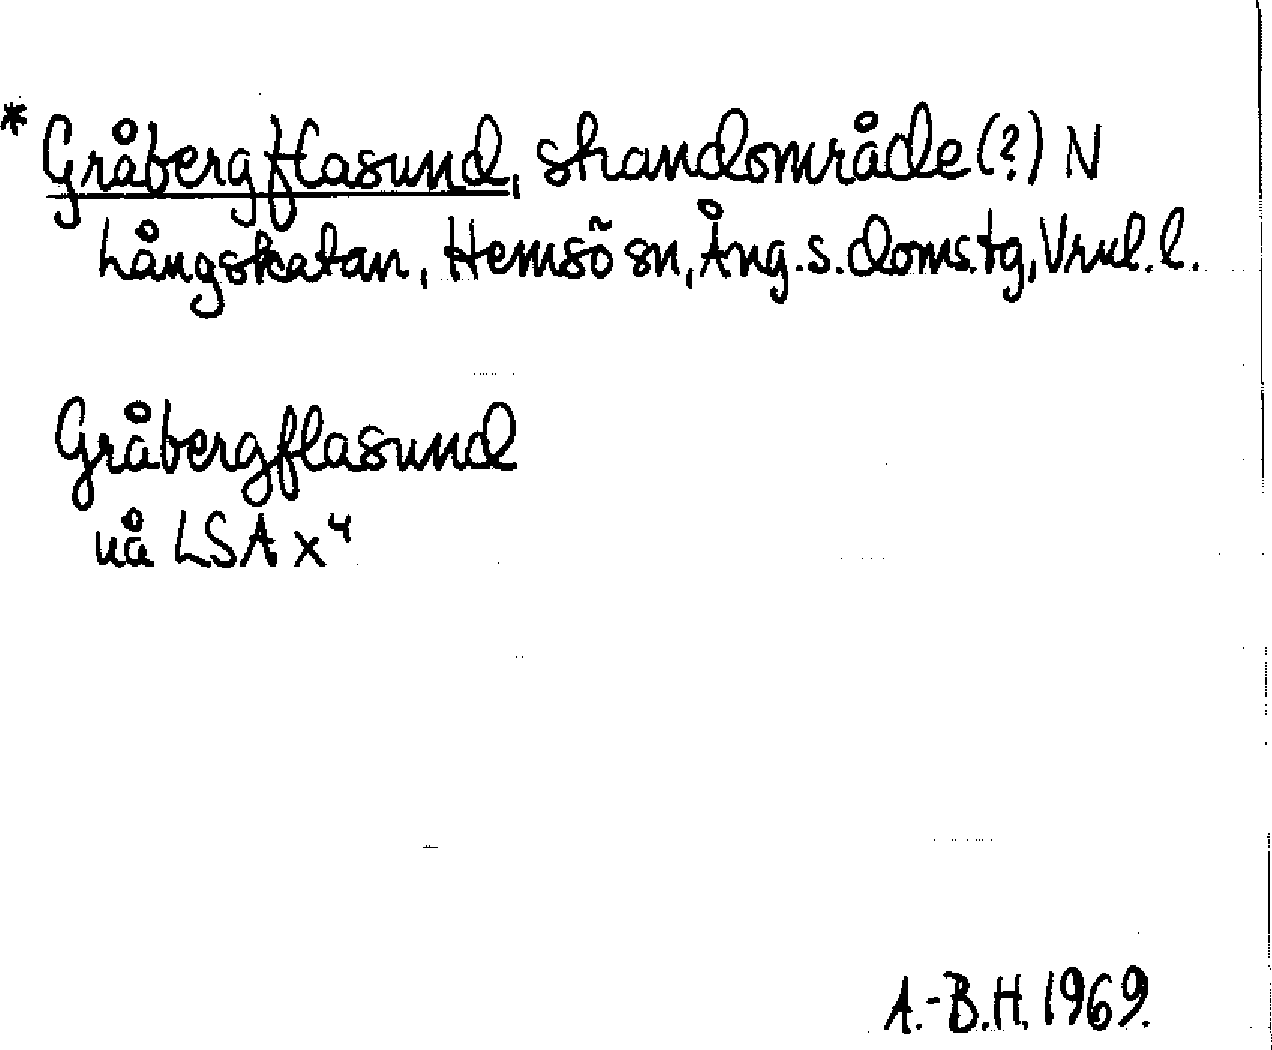 * Gråbergflasund, skandområde (?) N
Långskatan, Hemsö sn, Ång. s. doms.tg, Vrnl. l.
Gråbergflasund
nå LSA x⁴
A.-B.H. 1969.